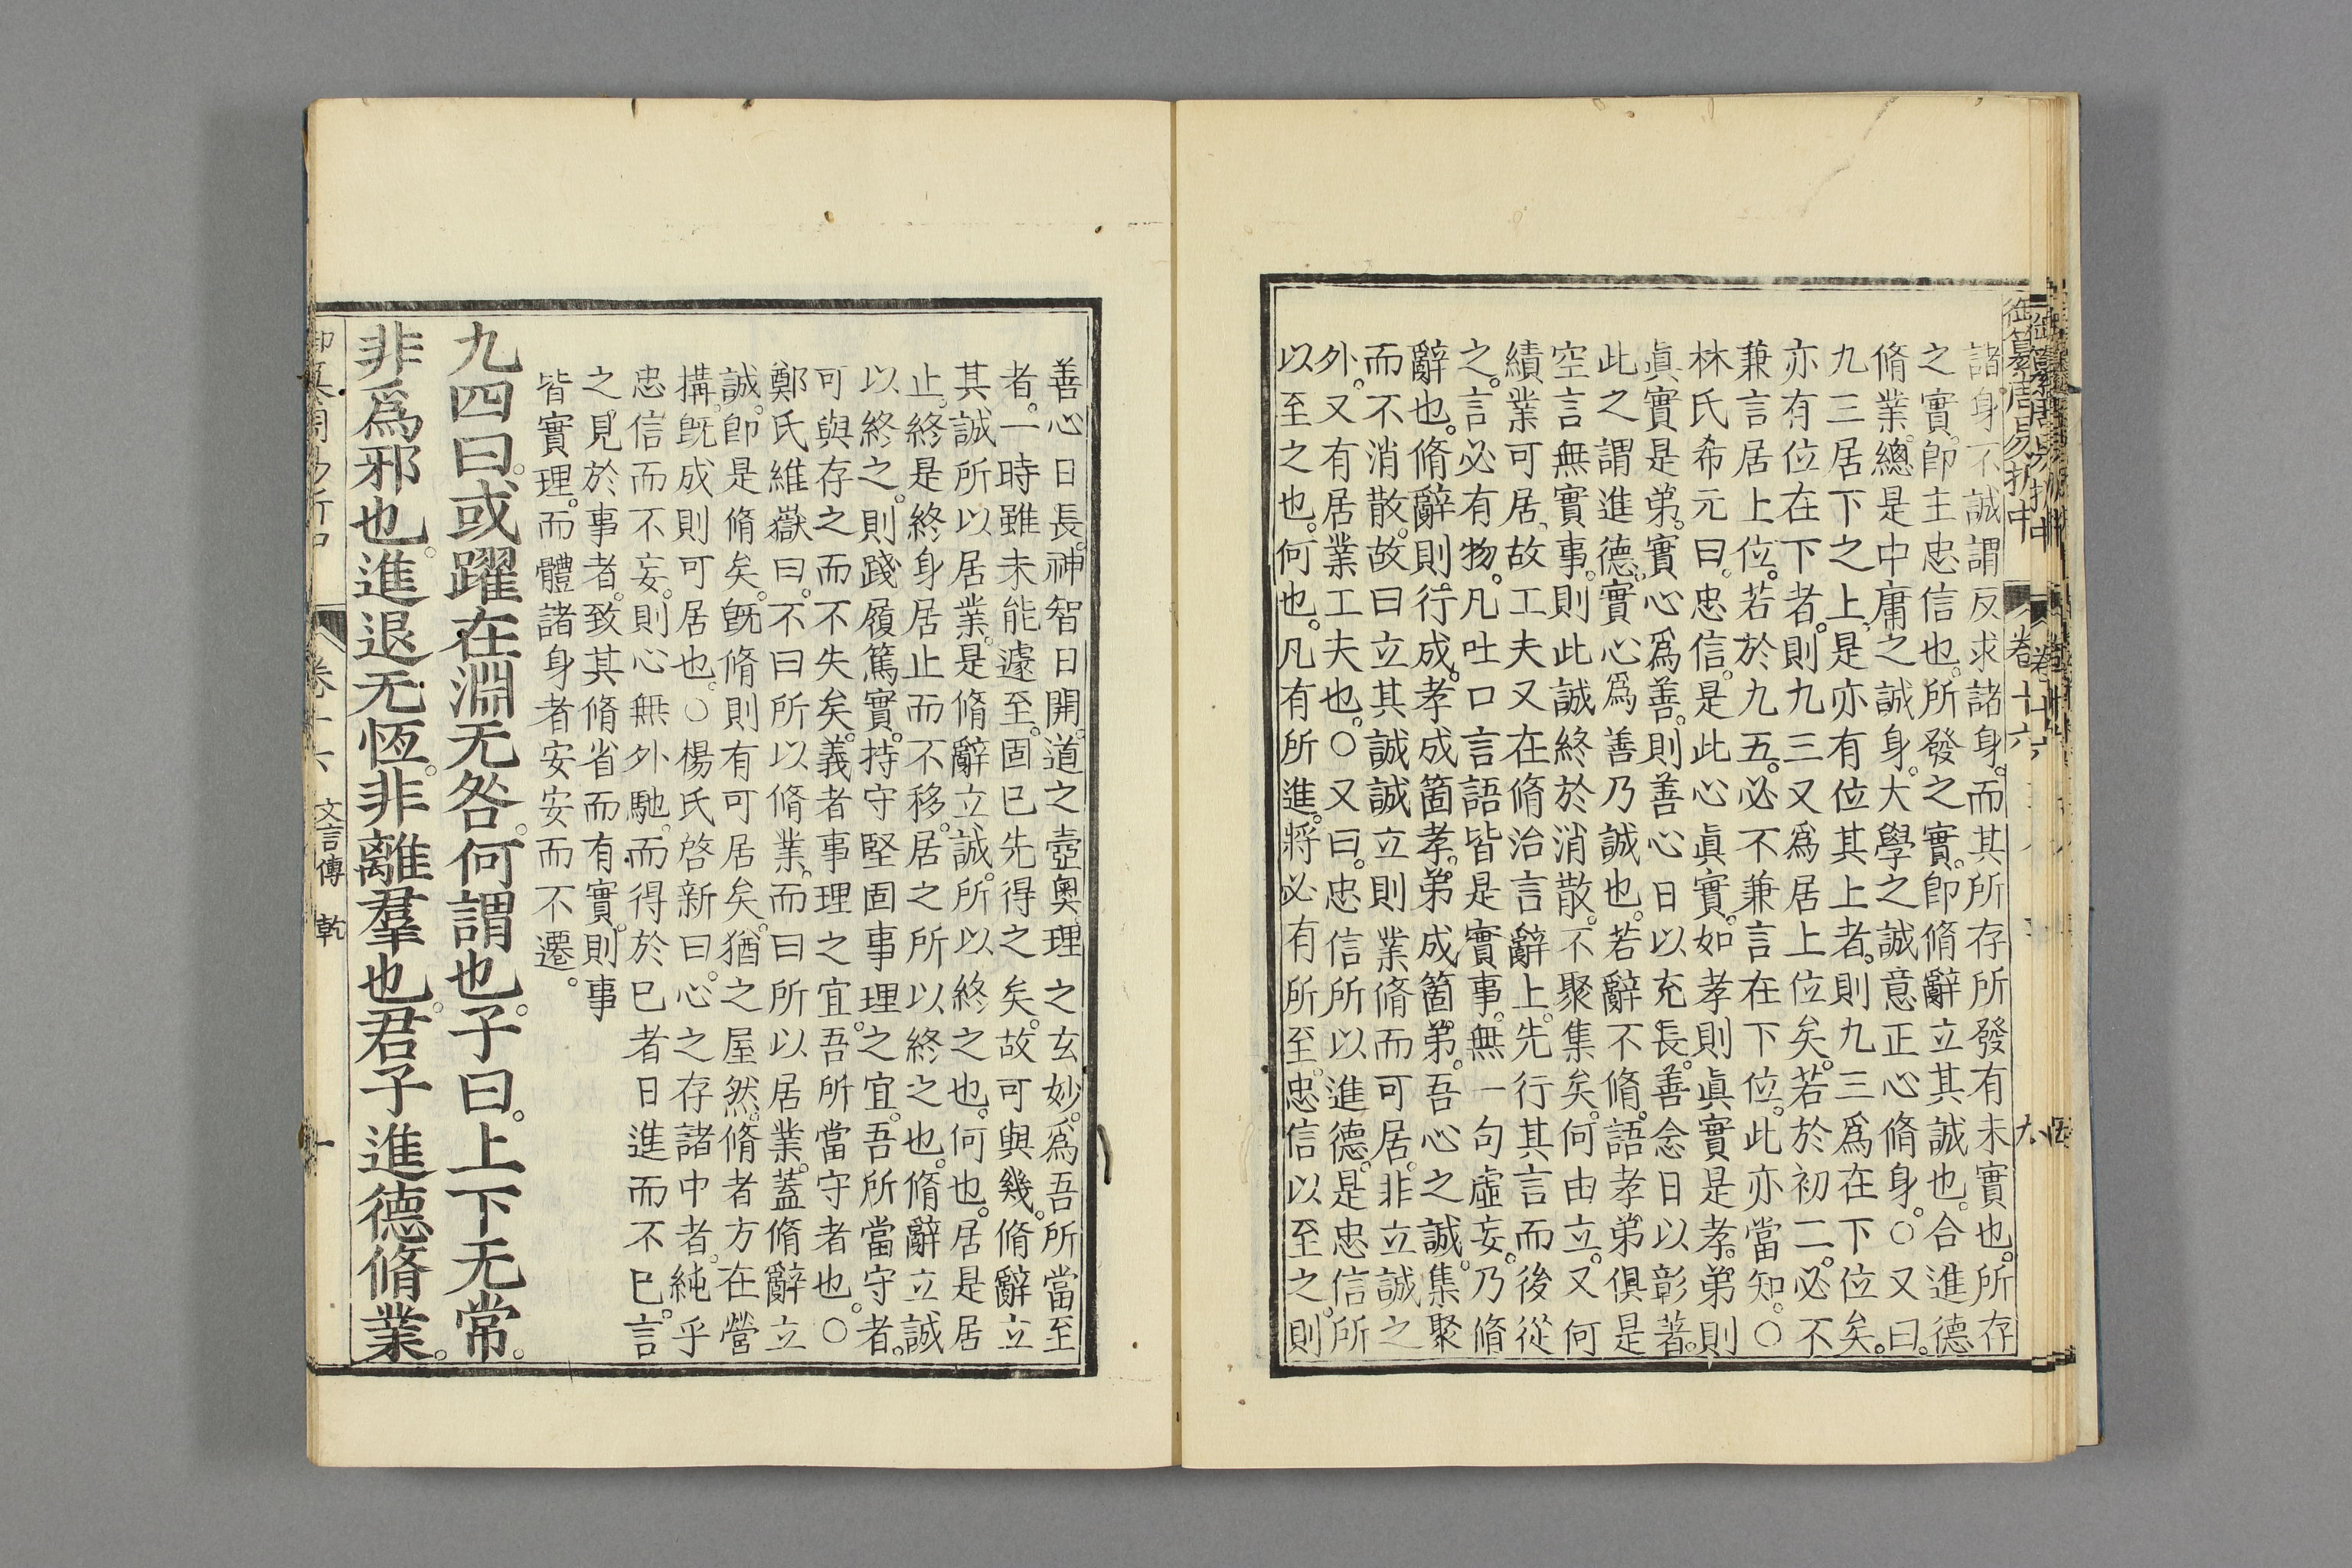 御纂周易折中
卷十六
諸身不誠謂反求諸身。而其所存所發有未實也。所存
之實。卽主忠信也。所發之實。卽脩辭立其誠也。合進德
脩業。總是中庸之誠身。大學之誠意正心脩身。○又曰。
九三居下之上。是亦有位其上者。則九三爲在下位矣。
亦有位在下者。則九三又爲居上位矣。若於初二。必不
兼言居上位。若於九五。必不兼言在下位。此亦當知。○
林氏希元曰。忠信。是此心眞實。如孝則眞實是孝。弟則
眞實是弟。實心爲善。則善心日以充長。善念日以彰著。
此之謂進德。實心爲善乃誠也。若辭不脩。語孝弟俱是
空言無實事。則此誠終於消散。不聚集矣。何由立。又何
績業可居。故工夫又在脩治言辭上。先行其言而後從
之。言必有物。凡吐口言語皆是實事。無一句虛妄。乃脩
辭也。脩辭則行成。孝成箇孝。弟成箇弟。吾心之誠。集聚
而不消散。故曰立其誠。誠立則業脩而可居。非立誠之
外。又有居業工夫也。○又曰。忠信所以進德。是忠信所
以至之也。何也。凡有所進。將必有所至。忠信以至之。則
善心日長。神智日開。道之壼奧。理之玄妙。爲吾所當至
者。一時雖未能遽至。固已先得之矣。故可與幾。脩辭立
其誠所以居業。是脩辭立誠。所以終之也。何也。居是居
止。終是終身居止而不移。居之所以終之也。脩辭立誠
以終之。則踐履篤實。持守堅固事理之宜。吾所當守者。
可與存之而不失矣。義者事理之宜。吾所當守者也。○
鄭氏維嶽曰。不曰所以脩業。而曰所以居業。蓋脩辭立
誠。卽是脩矣。旣脩則有可居矣。猶之屋然。脩者方在營
搆。旣成則可居也。○楊氏啓新曰。心之存諸中者。純乎
忠信而不妄。則心無外馳。而得於已者日進而不已。言
之見於事者。致其脩省而有實。則事
皆實理。而體諸身者安安而不遷。
九四曰。或躍在淵无咎。何謂也。子曰。上下无常。
非爲邪也。進退无恆。非離羣也。君子進德脩業。
文言傳 乾